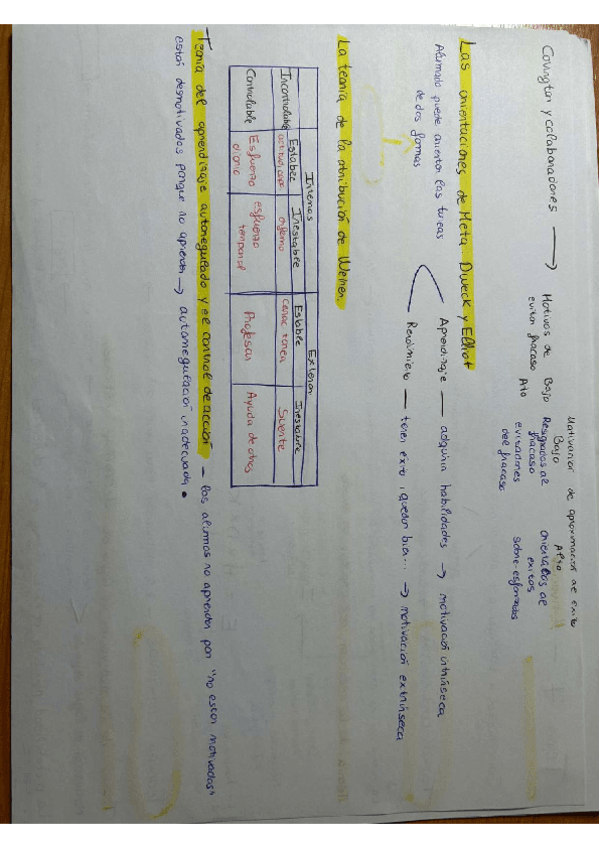 Motivación de aproximación al éxito
Bajo Alto
Covington y colaboradores → Motivos de evitar fracaso Bajo Resignados al fracaso Orientados al éxitos
Alto evitadores del fracaso sobre-esforzados
Las orientaciones de Meta. Dweck y Elliot
Alumnado puede orientar las tareas de dos formas
Aprendizaje — adquirir habilidades → motivación intrínseca
Rendimiento — tener éxito, quedar bien... → motivación extrínseca
La teoría de la atribución de Weiner.
Internas Externas
Estable Inestable Estable Inestable
Incontrolable enfermo Suerte
Controlable Esfuerzo diario esfuerzo temporal Profesor Ayuda de otros
Teoría del aprendizaje autorregulado y el control de acción – los alumnos no aprenden por "no están motivados"
están desmotivados porque no aprenden → autorregulación inadecuada.